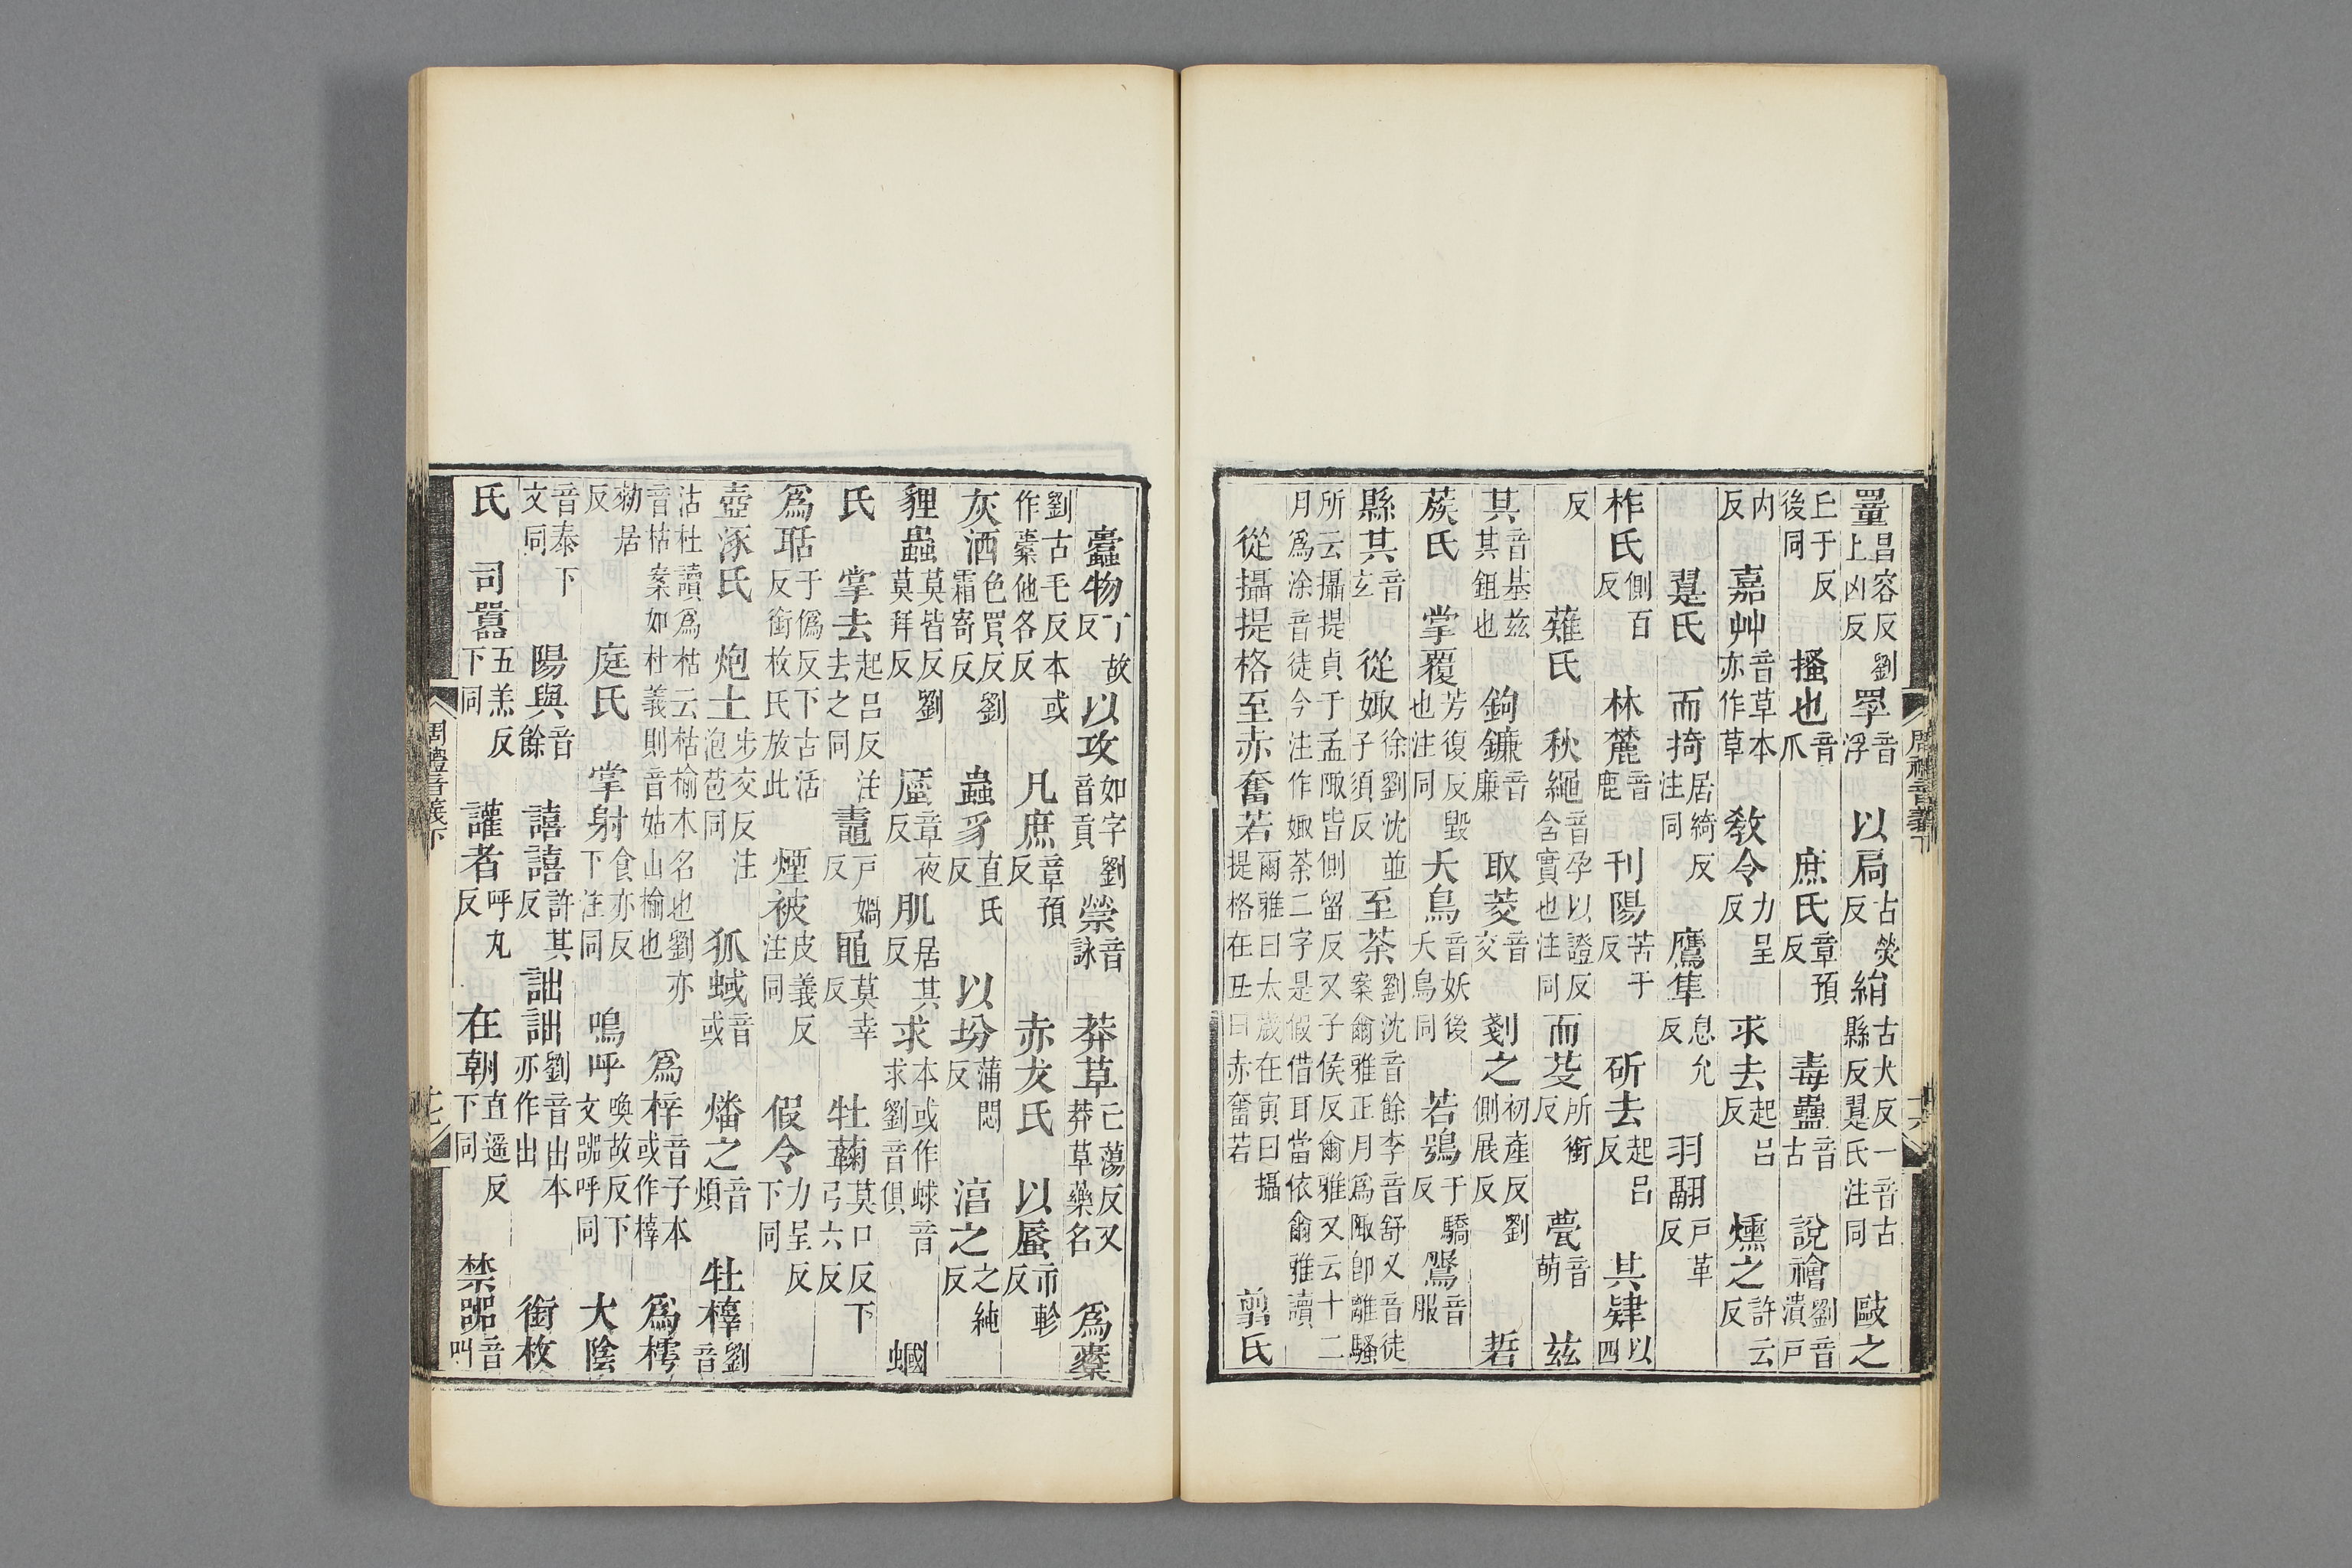 罿昌容反劉上凶反罦音浮以扃古熒反絹古犬反一音古縣反翨氏注同敺之
上于反後同搔也音爪庶氏章預反毒蠱音古說禬劉音潰戶
內反嘉艸音草本亦作草敎令力呈反求去起呂反燻之許云反
翨氏而掎居綺反注同鷹隼息允反羽翮戶革反
柞氏側百反林麓音鹿刊陽苦干反斫去起呂反其肄以四
反薙氏秋繩音孕以證反含實也注同而芟所銜反甍音萌茲
其音基茲其鉏也鉤鐮音廉取茭音交剗之初產反劉側展反硩
蔟氏掌覆芳復反毀也注同夭鳥音妖後夭鳥同若鴞于驕反鵩音服
縣其音玄從娵徐劉沈並子須反至荼劉沈音餘李音舒又音徒案爾雅正月爲陬卽離騷
所云攝提貞于孟陬皆側留反又子侯反爾雅又云十二月爲涂音徒今注作娵荼二字是假借耳當依爾雅讀
從攝提格至赤奮若爾雅曰太歲在寅曰攝提格在丑曰赤奮若翦氏
蠹物丁故反以攻如字劉音貢禜音詠莽草亡蕩反又莽草藥名爲櫜
劉古毛反本或作橐他各反凡庶章預反赤犮氏以蜃市軫反
灰洒色買反劉霜寄反蟲豸直氏反以坋蒲悶反湻之之純反
貍蟲莫皆反劉莫拜反䗪章夜反肌居其反求本或作蛷音求劉音俱蟈
氏掌去起呂反注去之同鼃戶媧反黽莫幸反牡蘜莫口反下弓六反
爲聒于僞反下古活反銜枚氏放此煙被皮義反注同假令力呈反下同
壺涿氏炮土步交反注泡苞同狐蜮音或燔之音煩牡橭劉音
沽杜讀爲枯云枯榆木名也劉亦音枯案如杜義則音姑山榆也爲梓音子本或作榟爲樗
勑居反庭氏掌射食亦反下注同嗚呼喚故反下文嘂呼同大陰
音泰下文同陽與音餘譆譆許其反詘詘劉音出本亦作出銜枚
氏司囂五羔反下同讙者呼丸反在朝直遥反下同禁嘂音叫
周禮音義下
十六
周禮音義下
十七